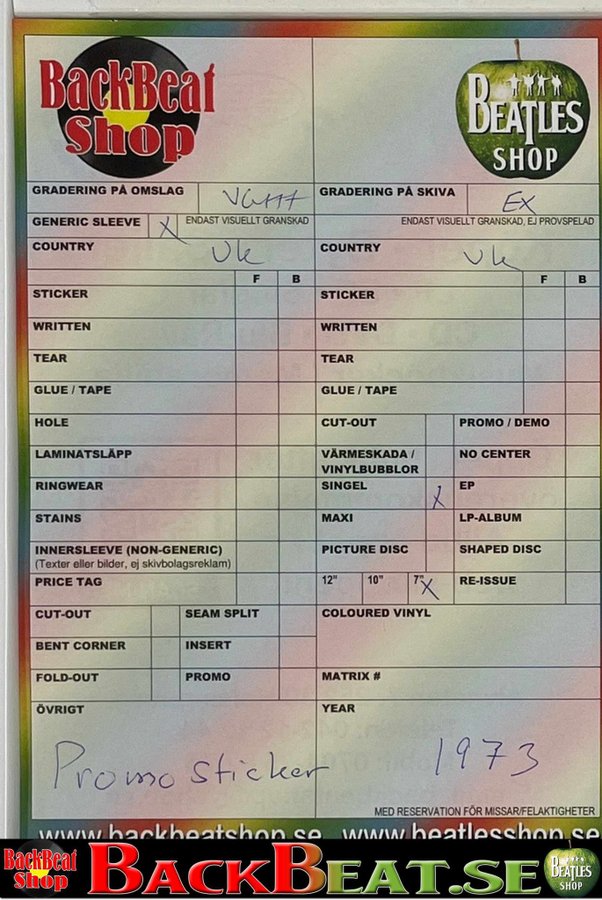 BackBeat
Shop
BEATLES
SHOP
GRADERING PÅ OMSLAG VG+++ GRADERING PÅ SKIVA EX
GENERIC SLEEVE X ENDAST VISUELLT GRANSKAD ENDAST VISUELLT GRANSKAD, EJ PROVSPELAD
COUNTRY UK COUNTRY UK
F B F B
STICKER STICKER
WRITTEN WRITTEN
TEAR TEAR
GLUE / TAPE GLUE / TAPE
HOLE CUT-OUT PROMO / DEMO
LAMINATSLÄPP VÄRMESKADA / NO CENTER
VINYLBUBBLOR
RINGWEAR SINGEL X EP
STAINS MAXI LP-ALBUM
INNERSLEEVE (NON-GENERIC) PICTURE DISC SHAPED DISC
(Texter eller bilder, ej skivbolagsreklam)
PRICE TAG 12" 10" 7" X RE-ISSUE
CUT-OUT SEAM SPLIT COLOURED VINYL
BENT CORNER INSERT
FOLD-OUT PROMO MATRIX #
ÖVRIGT YEAR
Promo sticker 1973
MED RESERVATION FÖR MISSAR/FELAKTIGHETER
www.backbeatshop.se www.beatlesshop.se
BackBeat
Shop
BACKBEAT.SE
BEATLES
SHOP